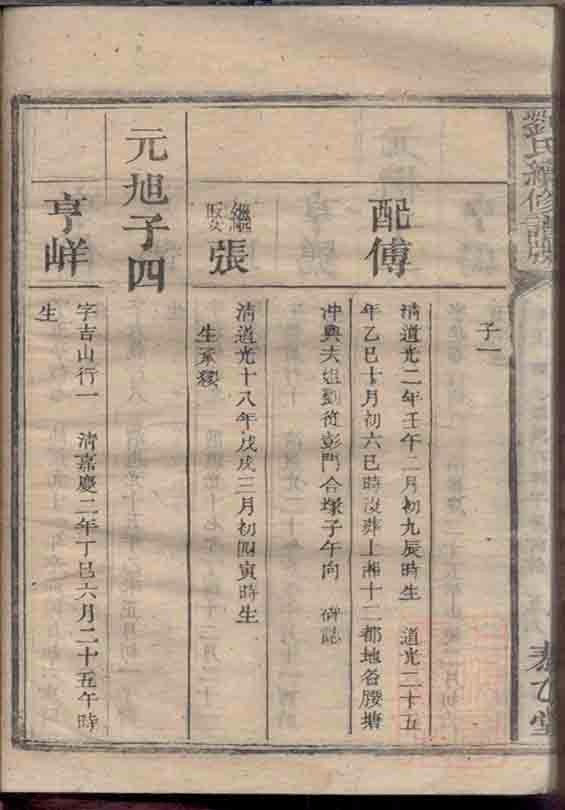 劉氏續修譜牒
泰乙堂
子一
配傅
清道光二年壬午二月初九辰時生 道光二十五
年乙巳十月初六巳時沒葬上湘十二都地名腰塘
冲與夫姐劉從彭門合塚子午向 碑誌
繼娶張
清道光十八年戊戌三月初四寅時生
生承
元旭子四
亨祥
字吉山行一 清嘉慶二年丁巳六月二十五午時
生